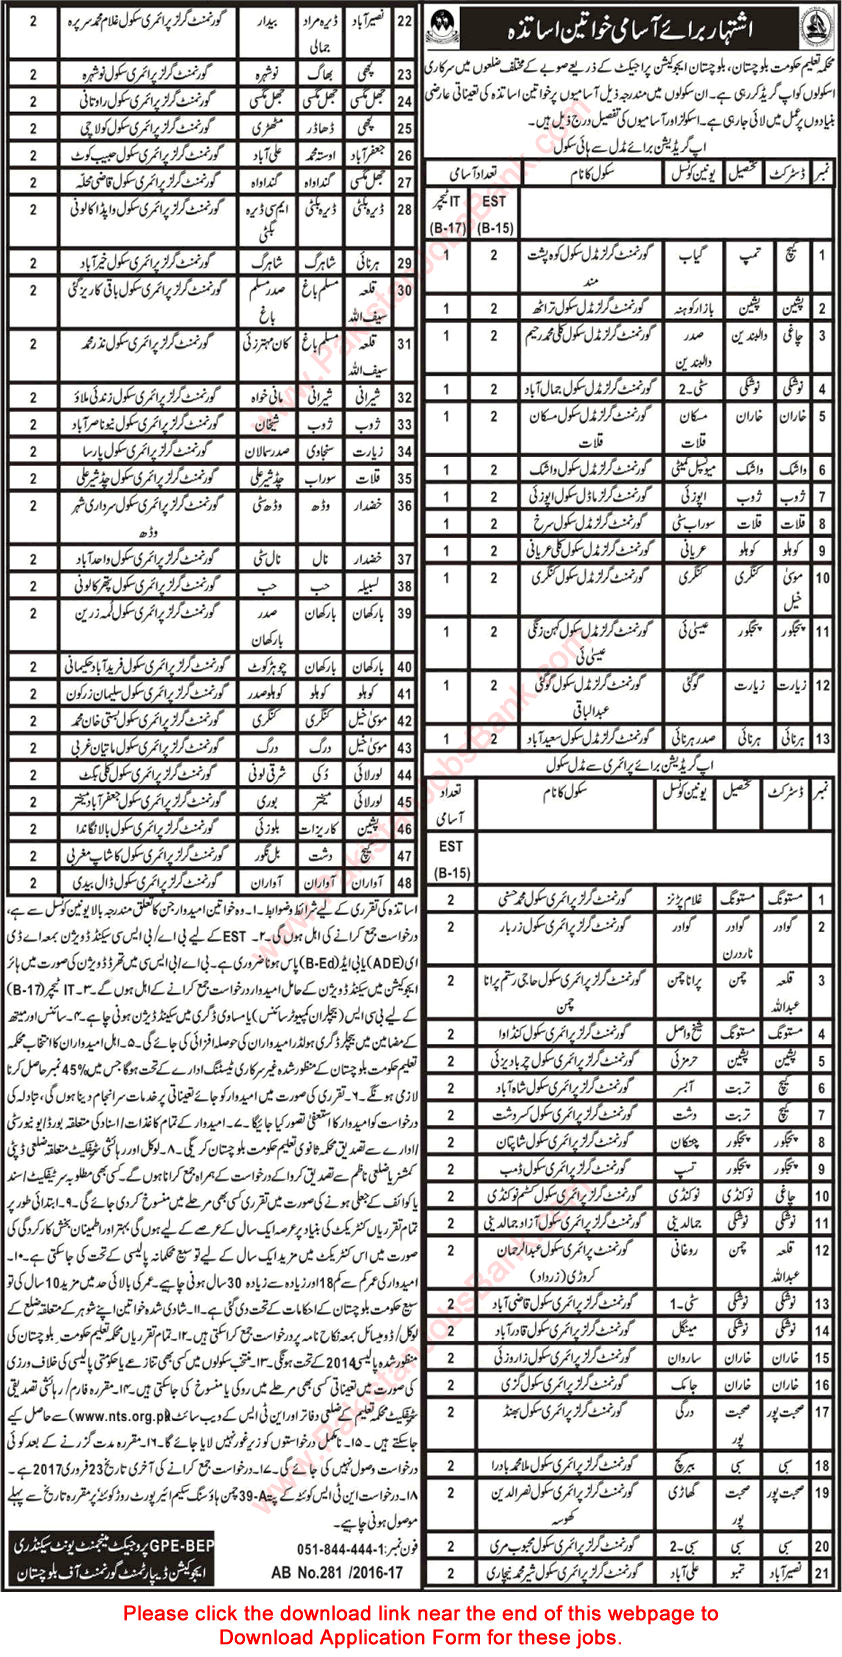 اشتہار برائے آسامی خواتین اساتذہ
محکمہ تعلیم حکومت بلوچستان، بلوچستان ایجوکیشن پراجیکٹ کے ذریعے صوبے کے مختلف ضلعوں میں سرکاری
اسکولوں کو اپ گریڈ کر رہی ہے۔ ان سکولوں میں مندرجہ ذیل آسامیوں پر خواتین اساتذہ کی تعیناتی عارضی
بنیادوں پر عمل میں لائی جا رہی ہے۔ اسکولز اور آسامیوں کی تفصیل درج ذیل ہیں۔
اپ گریڈیشن برائے مڈل سے ہائی سکول
نمبر ڈسٹرکٹ تحصیل یونین کونسل سکول کا نام تعداد آسامی
EST (B-15) IT ٹیچر (B-17)
1 کیچ تمپ گیاب گورنمنٹ گرلز مڈل سکول کوہ پشت مند 2 1
2 پشین پشین بازار کوہنہ گورنمنٹ گرلز مڈل سکول تراٹھ 2 1
3 چاغی دالبندین صدر دالبندین گورنمنٹ گرلز مڈل سکول کلی محمد رحیم 2 1
4 نوشکی نوشکی سٹی۔2 گورنمنٹ گرلز مڈل سکول جمال آباد 2 1
5 خاران خاران مسکان قلات گورنمنٹ گرلز مڈل سکول مسکان قلات 2 1
6 واشک واشک میونسپل کمیٹی گورنمنٹ گرلز مڈل سکول واشک 2 1
7 ژوب ژوب اپوزئی گورنمنٹ گرلز ماڈل سکول اپوزئی 2 1
8 قلات قلات سوراب سٹی گورنمنٹ گرلز مڈل سکول سرخ 2 1
9 کوہلو کوہلو عریانی گورنمنٹ گرلز مڈل سکول کلی عریانی 2 1
10 موسیٰ خیل کنگری کنگری گورنمنٹ گرلز مڈل سکول کنگری 2 1
11 پنجگور پنجگور عیسیٰ ئی گورنمنٹ گرلز مڈل سکول کہن زنگی عیسیٰ ئی 2 1
12 زیارت زیارت گوگئی گورنمنٹ گرلز مڈل سکول گوگئی عبدالباقی 2 1
13 ہرنائی ہرنائی صدر ہرنائی گورنمنٹ گرلز مڈل سکول سعید آباد 2 1
اپ گریڈیشن برائے پرائمری سے مڈل سکول
نمبر ڈسٹرکٹ تحصیل یونین کونسل سکول کا نام تعداد آسامی
EST (B-15)
1 مستونگ مستونگ غلام پڑنز گورنمنٹ گرلز پرائمری سکول محمد حسنی 2
2 گوادر گوادر ناردرن گوادر گورنمنٹ گرلز پرائمری سکول زربار 2
3 قلعہ عبداللہ چمن پرانا چمن گورنمنٹ گرلز پرائمری سکول حاجی رستم پرانا چمن 2
4 مستونگ مستونگ شیخ واصل گورنمنٹ گرلز پرائمری سکول کنڈاوا 2
5 پشین پشین حرمزئی گورنمنٹ گرلز پرائمری سکول چربادیزئی 2
6 کیچ تربت آبسر گورنمنٹ گرلز پرائمری سکول شاہ آباد 2
7 کیچ تربت دشت گورنمنٹ گرلز پرائمری سکول کسر دشت 2
8 پنجگور پنجگور چتکان گورنمنٹ گرلز پرائمری سکول شاپتان 2
9 پنجگور پنجگور تسپ گورنمنٹ گرلز پرائمری سکول ڈمب 2
10 چاغی نوکنڈی نوکنڈی گورنمنٹ گرلز پرائمری سکول کسٹم نوکنڈی 2
11 نوشکی نوشکی جمالدینی گورنمنٹ گرلز پرائمری سکول آزاد جمالدینی 2
12 قلعہ عبداللہ چمن روغانی گورنمنٹ گرلز پرائمری سکول عبدالرحمان کروڑی (زرداد) 2
13 نوشکی نوشکی سٹی۔1 گورنمنٹ گرلز پرائمری سکول قاضی آباد 2
14 نوشکی نوشکی مینگل گورنمنٹ گرلز پرائمری سکول قادر آباد 2
15 خاران خاران ساروان گورنمنٹ گرلز پرائمری سکول زاروزئی 2
16 خاران خاران جامک گورنمنٹ گرلز پرائمری سکول گزی 2
17 صحبت پور صحبت پور درگی گورنمنٹ گرلز پرائمری سکول بھنڈ 2
18 سبی سبی ببر کچ گورنمنٹ گرلز پرائمری سکول ملا محمد بادرا 2
19 صحبت پور صحبت پور گھاڑی گورنمنٹ گرلز پرائمری سکول نصر الدین کھوسہ 2
20 سبی سبی سبی۔2 گورنمنٹ گرلز پرائمری سکول محبوب مری 2
21 نصیر آباد تمبو علی آباد گورنمنٹ گرلز پرائمری سکول شیر محمد نیچاری 2
22 نصیر آباد ڈیرہ مراد جمالی بیدار گورنمنٹ گرلز پرائمری سکول غلام محمد سرپرہ 2
23 کچھی بھاگ نوشہرہ گورنمنٹ گرلز پرائمری سکول نوشہرہ 2
24 جھل مگسی جھل مگسی جھل مگسی گورنمنٹ گرلز پرائمری سکول راوتانی 2
25 کچھی ڈھاڈر مٹھڑی گورنمنٹ گرلز پرائمری سکول کولاچی 2
26 جعفر آباد اوستہ محمد علی آباد گورنمنٹ گرلز پرائمری سکول حبیب کوٹ 2
27 جھل مگسی گنداواہ گنداواہ گورنمنٹ گرلز پرائمری سکول قاضی محلہ 2
28 ڈیرہ بگٹی ڈیرہ بگٹی ایم سی ڈیرہ بگٹی گورنمنٹ گرلز پرائمری سکول واپڈا کالونی 2
29 ہرنائی شاہرگ شاہرگ گورنمنٹ گرلز پرائمری سکول خیر آباد 2
30 قلعہ سیف اللہ مسلم باغ صدر مسلم باغ گورنمنٹ گرلز پرائمری سکول باقی کاریزگئی 2
31 قلعہ سیف اللہ مسلم باغ کان مہترزئی گورنمنٹ گرلز پرائمری سکول نذر محمد 2
32 شیرانی شیرانی مانی خواہ گورنمنٹ گرلز پرائمری سکول زندئی ملاؤ 2
33 ژوب ژوب شیخان گورنمنٹ گرلز پرائمری سکول نیو ناصر آباد 2
34 زیارت سنجاوی صدر سالان گورنمنٹ گرلز پرائمری سکول پارسا 2
35 قلات سوراب چڈ شیر علی گورنمنٹ گرلز پرائمری سکول چڈ شیر علی 2
36 خضدار وڈھ وڈھ سٹی گورنمنٹ گرلز پرائمری سکول سرداری شہر وڈھ 2
37 خضدار نال نال سٹی گورنمنٹ گرلز پرائمری سکول واحد آباد 2
38 لسبیلہ حب حب گورنمنٹ گرلز پرائمری سکول پتھر کالونی 2
39 بارکھان بارکھان صدر بارکھان گورنمنٹ گرلز پرائمری سکول نُمہ زرین 2
40 بارکھان بارکھان چوہڑ کوٹ گورنمنٹ گرلز پرائمری سکول فرید آباد حکیمانی 2
41 کوہلو کوہلو کوہلو صدر گورنمنٹ گرلز پرائمری سکول سلیمان زرکون 2
42 موسیٰ خیل کنگری کنگری گورنمنٹ گرلز پرائمری سکول بستی خان محمد 2
43 موسیٰ خیل درگ درگ گورنمنٹ گرلز پرائمری سکول ماتیان غربی 2
44 لورالائی دُکی شرقی لونی گورنمنٹ گرلز پرائمری سکول کلی بکٹ 2
45 لورالائی میختر بوری گورنمنٹ گرلز پرائمری سکول جعفر آباد میختر 2
46 پشین کاریزات بلوزئی گورنمنٹ گرلز پرائمری سکول بالا نگاندا 2
47 کیچ دشت بل نگور گورنمنٹ گرلز پرائمری سکول کاشاپ مغربی 2
48 آواران آواران آواران گورنمنٹ گرلز پرائمری سکول ڈال بیدی 2
اساتذہ کی تقرری کے لیے شرائط و ضوابط۔ ۱۔ وہ خواتین امیدوار جن کا تعلق مندرجہ بالا یونین کونسل سے ہے،
درخواست جمع کرانے کی اہل ہوں گی۔ ۲۔ EST کے لیے بی اے/ بی ایس سی سیکنڈ ڈویژن بمعہ اے ڈی
ای (ADE) یا بی ایڈ (B-Ed) پاس ہونا ضروری ہے۔ بی اے/ بی ایس سی میں تھرڈ ڈویژن کی صورت میں ہائر
ایجوکیشن میں سیکنڈ ڈویژن کے حامل امیدوار درخواست جمع کرانے کے اہل ہوں گے۔ ۳۔ IT ٹیچر (B-17)
کے لیے بی سی ایس (بیچلر ان کمپیوٹر سائنس) یا مساوی ڈگری میں سیکنڈ ڈویژن ہونی چاہیے۔ ۴۔ سائنس اور میتھ
کے مضامین میں بیچلر ڈگری ہولڈر امیدواران کی حوصلہ افزائی کی جائے گی۔ ۵۔ اہل امیدواران کا انتخاب محکمہ
تعلیم حکومت بلوچستان کے منظور شدہ غیر سرکاری ٹیسٹنگ ادارے کے تحت ہوگا جس میں 45% نمبر حاصل کرنا
لازمی ہونگے۔ ۶۔ تقرری کی صورت میں امیدوار کو جائے تعیناتی پر خدمات سرانجام دینا ہوں گی، تبادلہ کی
درخواست کو امیدوار کا استعفیٰ تصور کیا جائیگا۔ ۷۔ امیدوار کے تمام کاغذات/ اسناد کی متعلقہ بورڈ/ یونیورسٹی
/ ادارے سے تصدیق محکمہ ثانوی تعلیم حکومت بلوچستان کریگی۔ ۸۔ لوکل اور رہائشی سرٹیفکیٹ متعلقہ ضلعی ڈپٹی
کمشنر یا ضلعی ناظم سے تصدیق کروا کے درخواست کے ہمراہ جمع کرانا ہوں گے۔ کسی بھی مطلوبہ سرٹیفکیٹ/ سند
یا کوائف کے جعلی ہونے کی صورت میں تقرری کسی بھی مرحلے میں منسوخ کر دی جائے گی۔ ۹۔ ابتدائی طور پر
تمام تقرریاں کنٹریکٹ کی بنیاد پر عرصہ ایک سال کے عرصے کے لیے ہوں گی بہتر اور اطمینان بخش کارکردگی کی
صورت میں اس کنٹریکٹ میں مزید ایک سال کے لیے توسیع محکمانہ پالیسی کے تحت کی جا سکتی ہے۔ ۱۰۔
امیدوار کی عمر کم سے کم 18 اور زیادہ سے زیادہ 30 سال ہونی چاہیے۔ عمر کی بالائی حد میں مزید 10 سال کی تو
سیع حکومت بلوچستان کے احکامات کے تحت دی گئی ہے۔ ۱۱۔ شادی شدہ خواتین اپنے شوہر کے متعلقہ ضلع کے
لوکل/ ڈومیسائل بمعہ نکاح نامہ پر درخواست جمع کرا سکتی ہیں۔ ۱۲۔ تمام تقرریاں محکمہ تعلیم حکومت، بلوچستان کی
منظور شدہ پالیسی 2014 کے تحت ہونگی۔ ۱۳۔ منتخب سکولوں میں کسی بھی تنازعے یا حکومتی پالیسی کی خلاف ورزی
کی صورت میں تعیناتی کسی بھی مرحلے میں روکی یا منسوخ کی جا سکتی ہیں۔ ۱۴۔ مقررہ فارم/ رہائشی تصدیقی
سرٹیفکیٹ محکمہ تعلیم کے ضلعی دفاتر اور این ٹی ایس کے ویب سائٹ (www.nts.org.pk) سے حاصل کیے
جا سکتے ہیں۔ ۱۵۔ نامکمل درخواستوں کو زیر غور نہیں لایا جائے گا۔ ۱۶۔ مقررہ مدت گزرنے کے بعد کوئی
درخواست وصول نہیں کی جائے گی۔ ۱۷۔ درخواست جمع کرانے کی آخری تاریخ 23 فروری 2017 ہے۔
۱۸۔ درخواست این ٹی ایس کوئٹہ کے پتہ 39-A چمن ہاؤسنگ سکیم ائیر پورٹ روڈ کوئٹہ پر مقررہ تاریخ سے پہلے
موصول ہونی چاہیے۔
فون نمبر: 051-844-444-1
GPE-BEP پروجیکٹ مینجمنٹ یونٹ سیکنڈری
ایجوکیشن ڈیپارٹمنٹ گورنمنٹ آف بلوچستان
AB No.281 /2016-17
www.PakistanJobsBank.com
Please click the download link near the end of this webpage to
Download Application Form for these jobs.